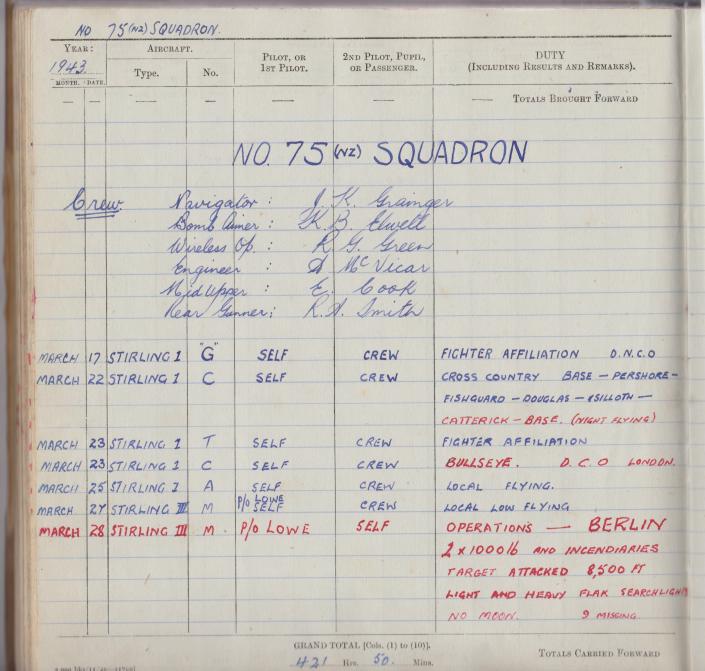 NO 75 (NZ) SQUADRON.
YEAR: AIRCRAFT. PILOT, OR 1ST PILOT. 2ND PILOT, PUPIL, OR PASSENGER. DUTY (INCLUDING RESULTS AND REMARKS).
1943.
MONTH. DATE. Type. No.
— — — — — — — TOTALS BROUGHT FORWARD
NO. 75 (NZ) SQUADRON
Crew. Navigator : J. K. Grainger
Bomb Aimer : K. B. Elwell
Wireless Op. : R. G. Green
Engineer : D McVicar
Mid Upper : E. Cook
Rear Gunner; R. A. Smith
MARCH 17 STIRLING 1 "G" SELF CREW FIGHTER AFFILIATION D.N.C.O
MARCH 22 STIRLING 1 C SELF CREW CROSS COUNTRY BASE – PERSHORE –
FISHGUARD – DOUGLAS – SILLOTH –
CATTERICK – BASE. (NIGHT FLYING)
MARCH 23 STIRLING 1 T SELF CREW FIGHTER AFFILIATION
MARCH 23 STIRLING 1 C SELF CREW BULLSEYE. D.C.O LONDON.
MARCH 25 STIRLING 1 A SELF CREW LOCAL FLYING.
MARCH 27 STIRLING III M P/O LOWE SELF CREW LOCAL LOW FLYING
MARCH 28 STIRLING III M P/O LOWE SELF OPERATIONS — BERLIN
2 x 1000 lb AND INCENDIARIES
TARGET ATTACKED 8,500 FT
LIGHT AND HEAVY FLAK SEARCHLIGHTS
NO MOON. 9 MISSING.
GRAND TOTAL [Cols. (1) to (10)].
421 Hrs. 50. Mins. TOTALS CARRIED FORWARD